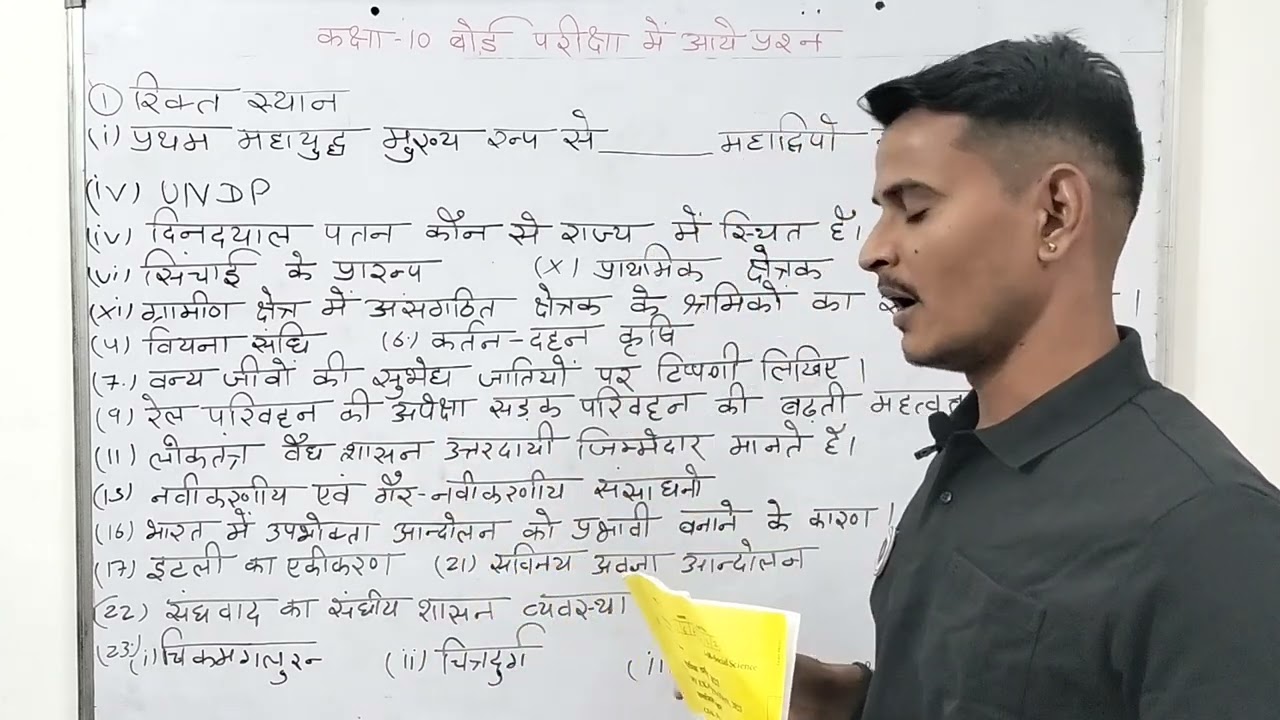 कक्षा-10 बोर्ड परीक्षा में आये प्रश्न
① रिक्त स्थान
(i) प्रथम महायुद्ध मुख्य रूप से ______ महाद्विपो
(iv) UNDP
(iv) दिनदयाल पतन कौन से राज्य में स्थित है।
(vi) सिंचाई के प्रारूप (x) प्राथमिक क्षेत्रक
(xi) ग्रामीण क्षेत्र में असंगठित क्षेत्रक के श्रमिकों का
(5) वियना संधि (6.) कर्तन-दहन कृषि
(7.) वन्य जीवों की सुभेद्य जातियों पर टिप्पणी लिखिए।
(9) रेल परिवहन की अपेक्षा सड़क परिवहन की बढ़ती
(11) लोकतंत्र वैध शासन उत्तरदायी जिम्मेदार मानते हैं।
(13) नवीकरणीय एवं गैर-नवीकरणीय संसाधनो
(16) भारत में उपभोक्ता आन्दोलन को प्रभावी बनाने के कारण।
(17) इटली का एकीकरण (21) सविनय अवज्ञा आन्दोलन
(22) संघवाद का संघीय शासन व्यवस्था
(23.) (i) चिकमगलुरू (ii) चित्रदुर्ग
Social Science